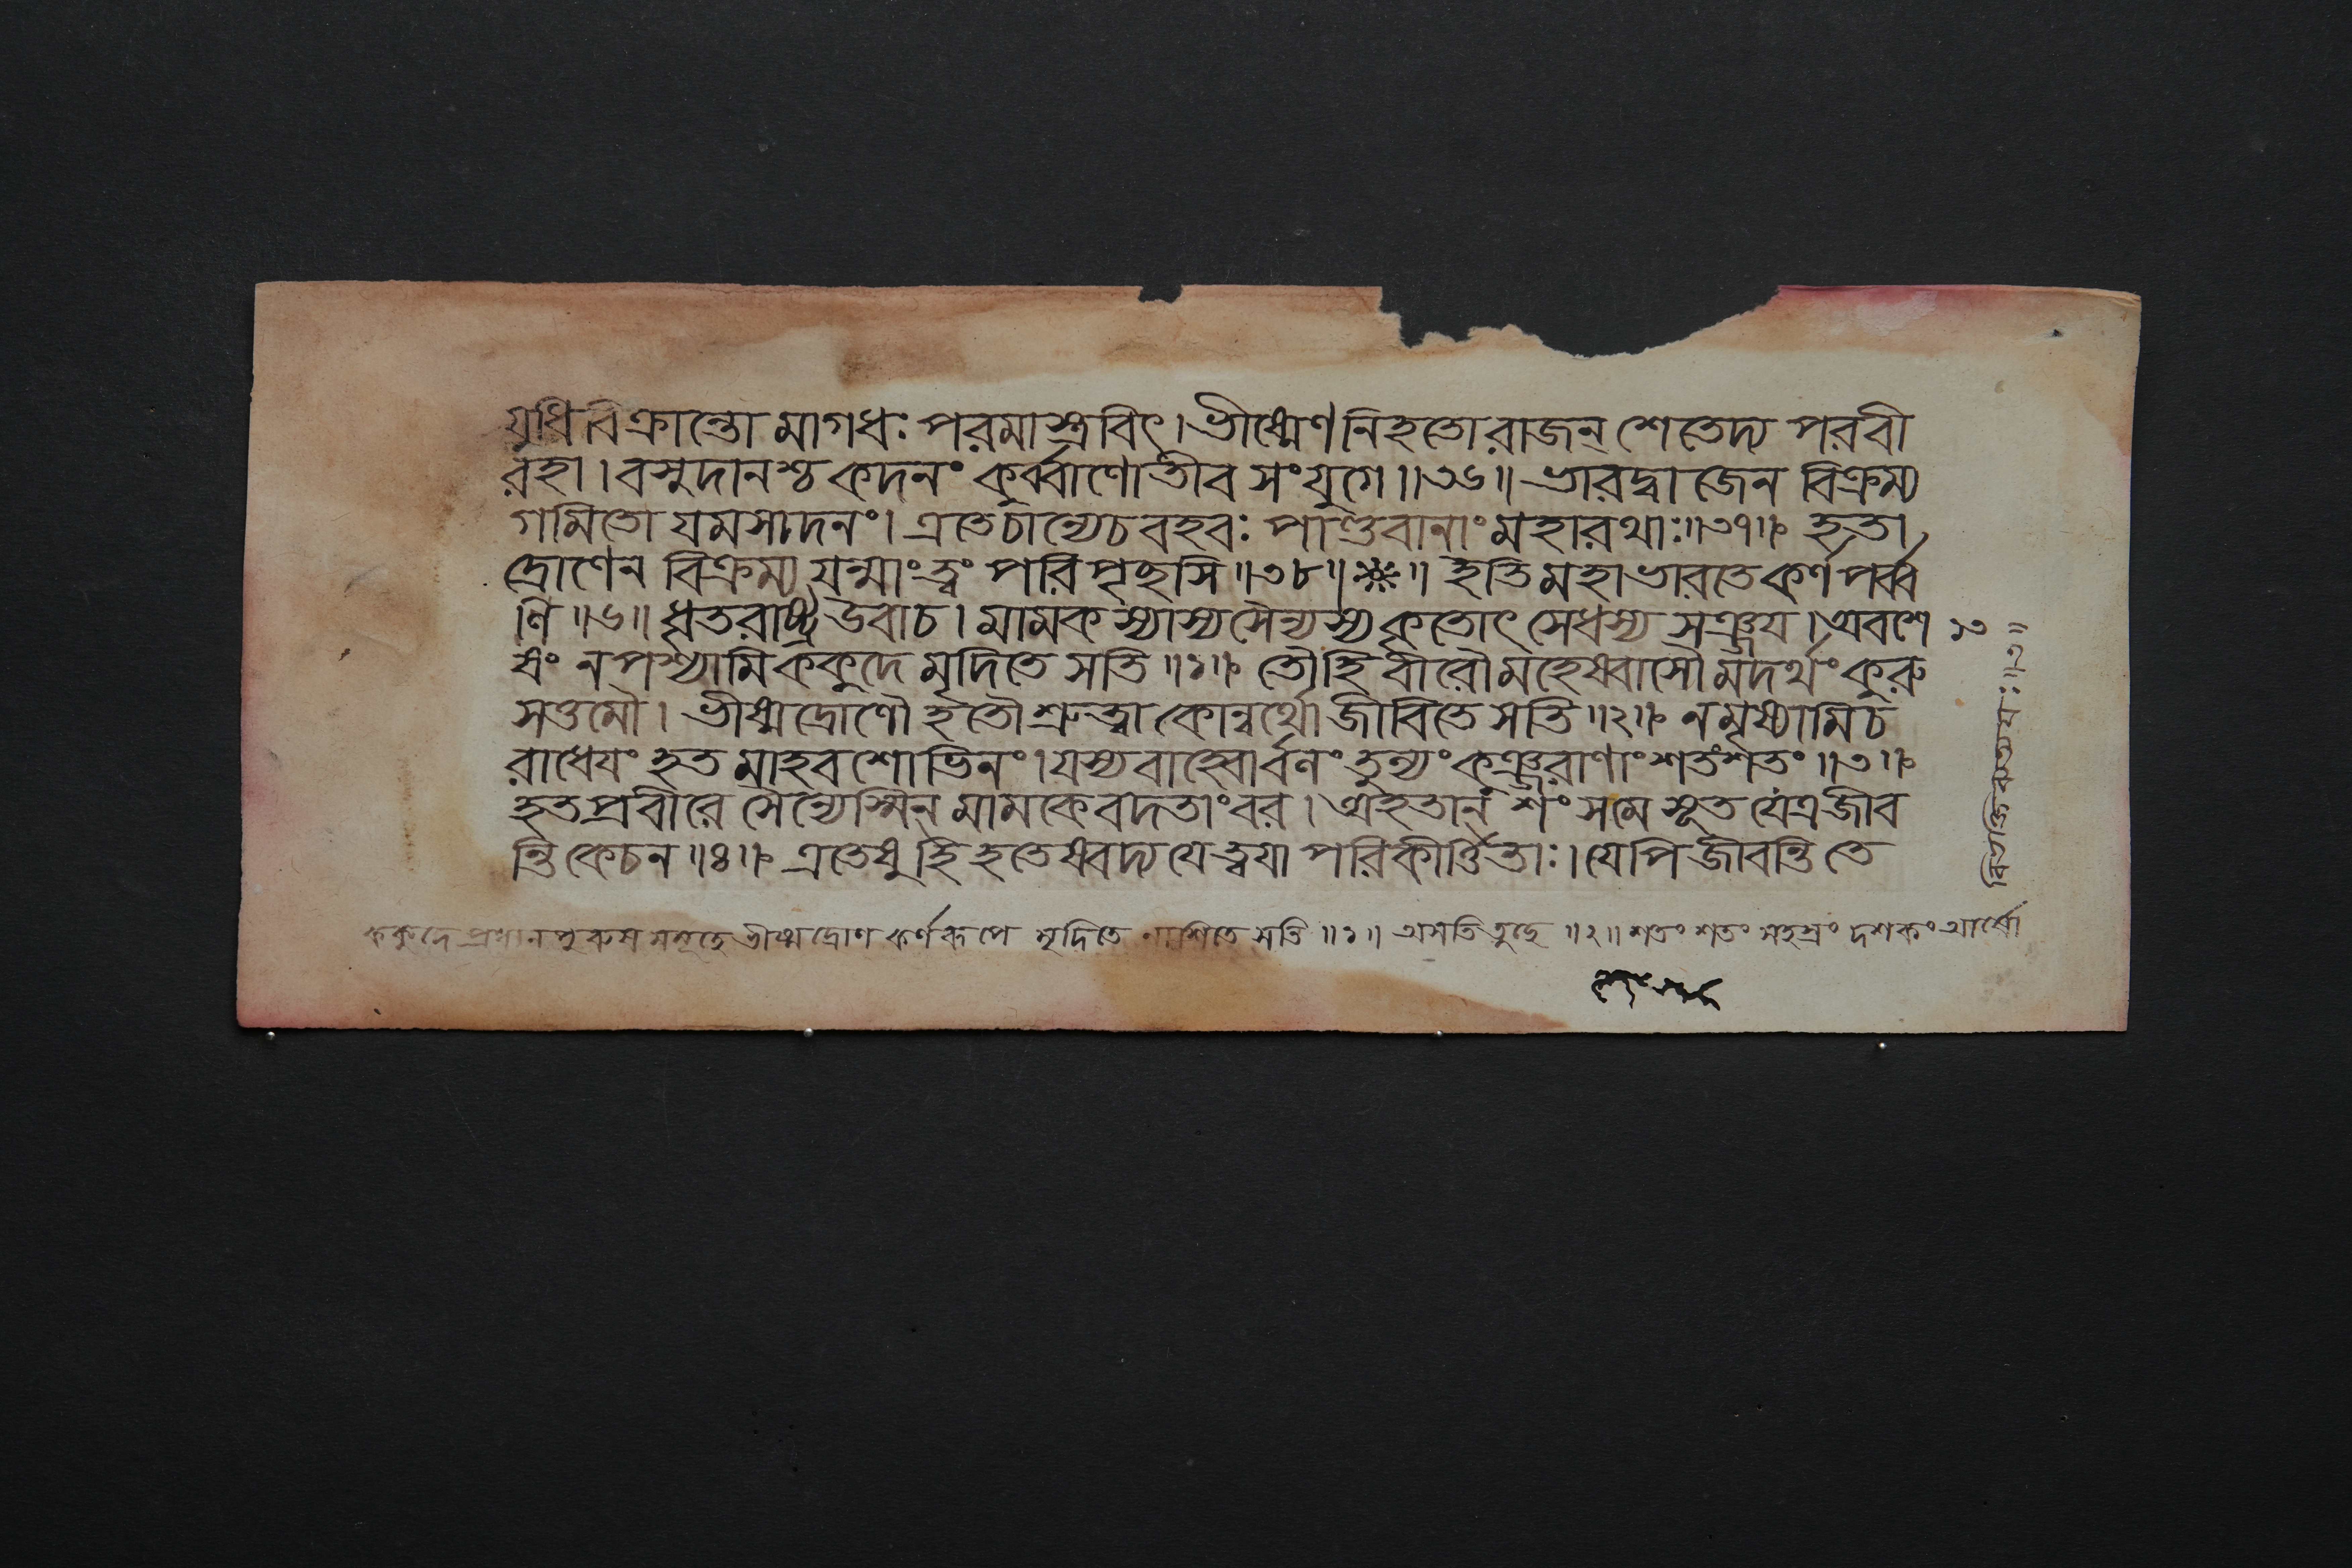 যুধি বিক্রান্তো মাগধঃ পরমাস্ত্রবিৎ। ভীষ্মেণ নিহতো রাজন্ শেতেদ্য পরবী
রহা। বসুদানশ্চ কদনং কুর্ব্বাণোতীব সংযুগে॥৩৬॥ ভারদ্বাজেন বিক্রম্য
গমিতো যমসাদনং। এতে চান্যে চ বহবঃ পাণ্ডবানাং মহারথাঃ॥৩৭॥ হতা
দ্রোণেন বিক্রম্য যন্মাং ত্বং পরিপৃচ্ছসি॥৩৮॥ ॥ ইতি মহাভারতে কর্ণপর্ব্ব
ণি॥৬॥ ধৃতরাষ্ট্র উবাচ। মামকস্যাস্য সৈন্যস্য কৃতোৎসেধস্য সঞ্জয়। অবশে
ষং ন পশ্যামি ককুদে মৃদিতে সতি॥১॥ তৌ হি বীরৌ মহেষ্বাসৌ মদর্থং কুরু
সত্তমৌ। ভীষ্মদ্রোণৌ হতৌ শ্রুত্বা কোন্বর্থো জীবিতে সতি॥২॥ ন মৃষ্যামি চ
রাধেয়ং হতমাহবশোভিনং। যস্য বাহ্বোর্বলং তুল্যং কুঞ্জরাণাং শতং শতং॥৩॥
হতপ্রবীরে সৈন্যেস্মিন্ মামকে বদতাং বর। অহতান্ শংস মে সূত যেত্র জীব
ন্তি কেচন॥৪॥ এতেষু হি হতেষ্বদ্য যে ত্বয়া পরিকীর্ত্তিতাঃ। যেপি জীবন্তি তে
ককুদে প্রধানপুরুষসমূহে ভীষ্মদ্রোণকর্ণরূপে মৃদিতে নাশিতে সতি॥১॥ অসতি তুচ্ছে॥২॥ শতং শতং সহস্রং দশকং
১৩